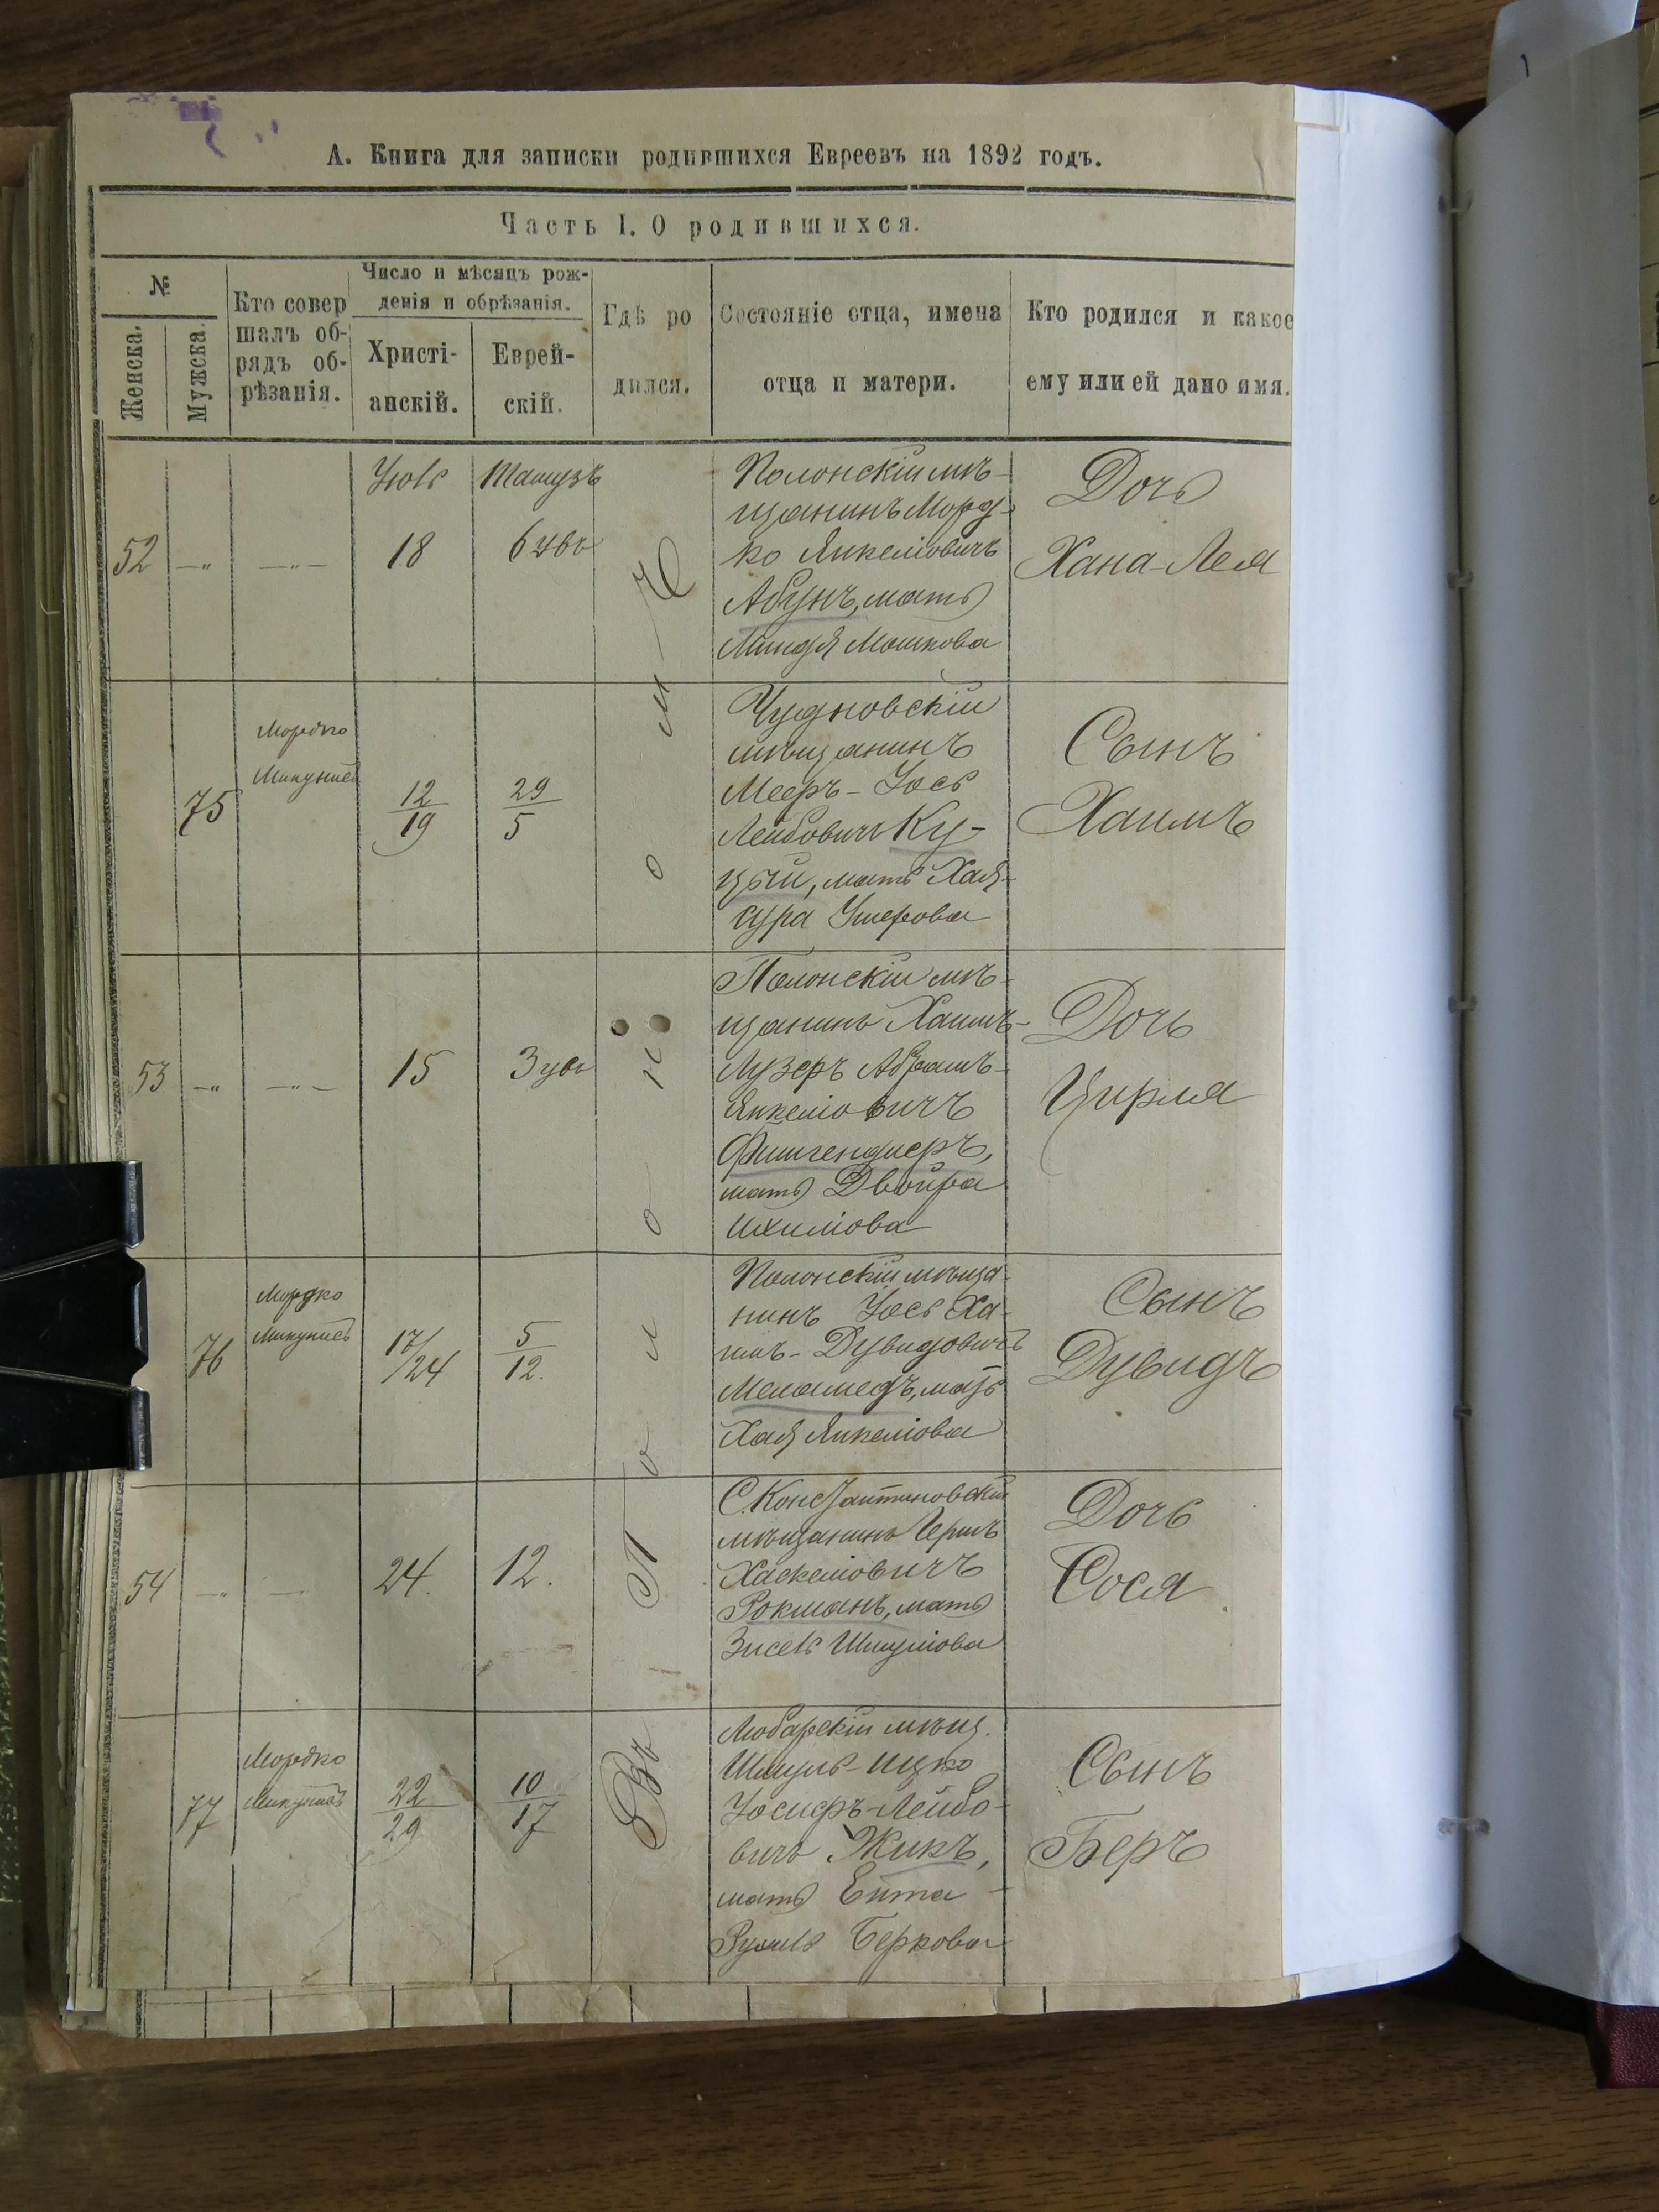 А. Книга для записки родившихся Евреевъ на 1892 годъ.
Часть I. О родившихся.
№
Женска.
Мужска.
Кто совер
шалъ об-
рядъ об-
рѣзанія.
Число и мѣсяцъ рож-
денія и обрѣзанія.
Христі-
анскій.
Еврей-
скій.
Гдѣ ро
дился.
Состояніе отца, имена
отца и матери.
Кто родился и какое
ему или ей дано имя.
Въ Полономъ
52
18
Полонскій мѣ-
щанинъ Морд-
ко Янкеліовичъ
Абунъ, мать
Миндя Мошкова
Дочь
Хана-Лея
75
Мордко
12
19
29
5
Чудновскій
мѣщанинъ
Мееръ-Іось
Лейбовичъ Ку-
цый, мать Хая-
сура Ушерова
Сынъ
Хаимъ
53
15
Полонскій мѣ-
щанинъ Хаимъ-
Лузеръ Абрамъ-
Янкеліовичъ
мать Двойра
Дочь
Цирля
76
Мордко
17/24
5
12.
Полонскій мѣща-
нинъ Іось Ха-
имъ-Дувидовичъ
Меламедъ, мать
Хая Янкеліова
Сынъ
Дувидъ
54
24.
12.
С. Константиновскій
мѣщанинъ Гершъ
Хаскеліовичъ
Рокманъ, мать
Зисель Шмуліова
Дочь
Сося
77
Мордко
22
29
10
17
Любарскій мѣщ.
Шмуль-Ицко
Іосифъ-Лейбо-
вичъ Жикъ,
мать Ента
Рухль Беркова
Сынъ
Беръ